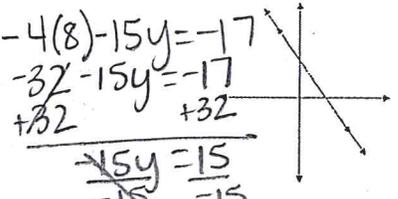 -4(8)-15y=-17
-32-15y=-17
+32 +32
-15y=15
-15 -15